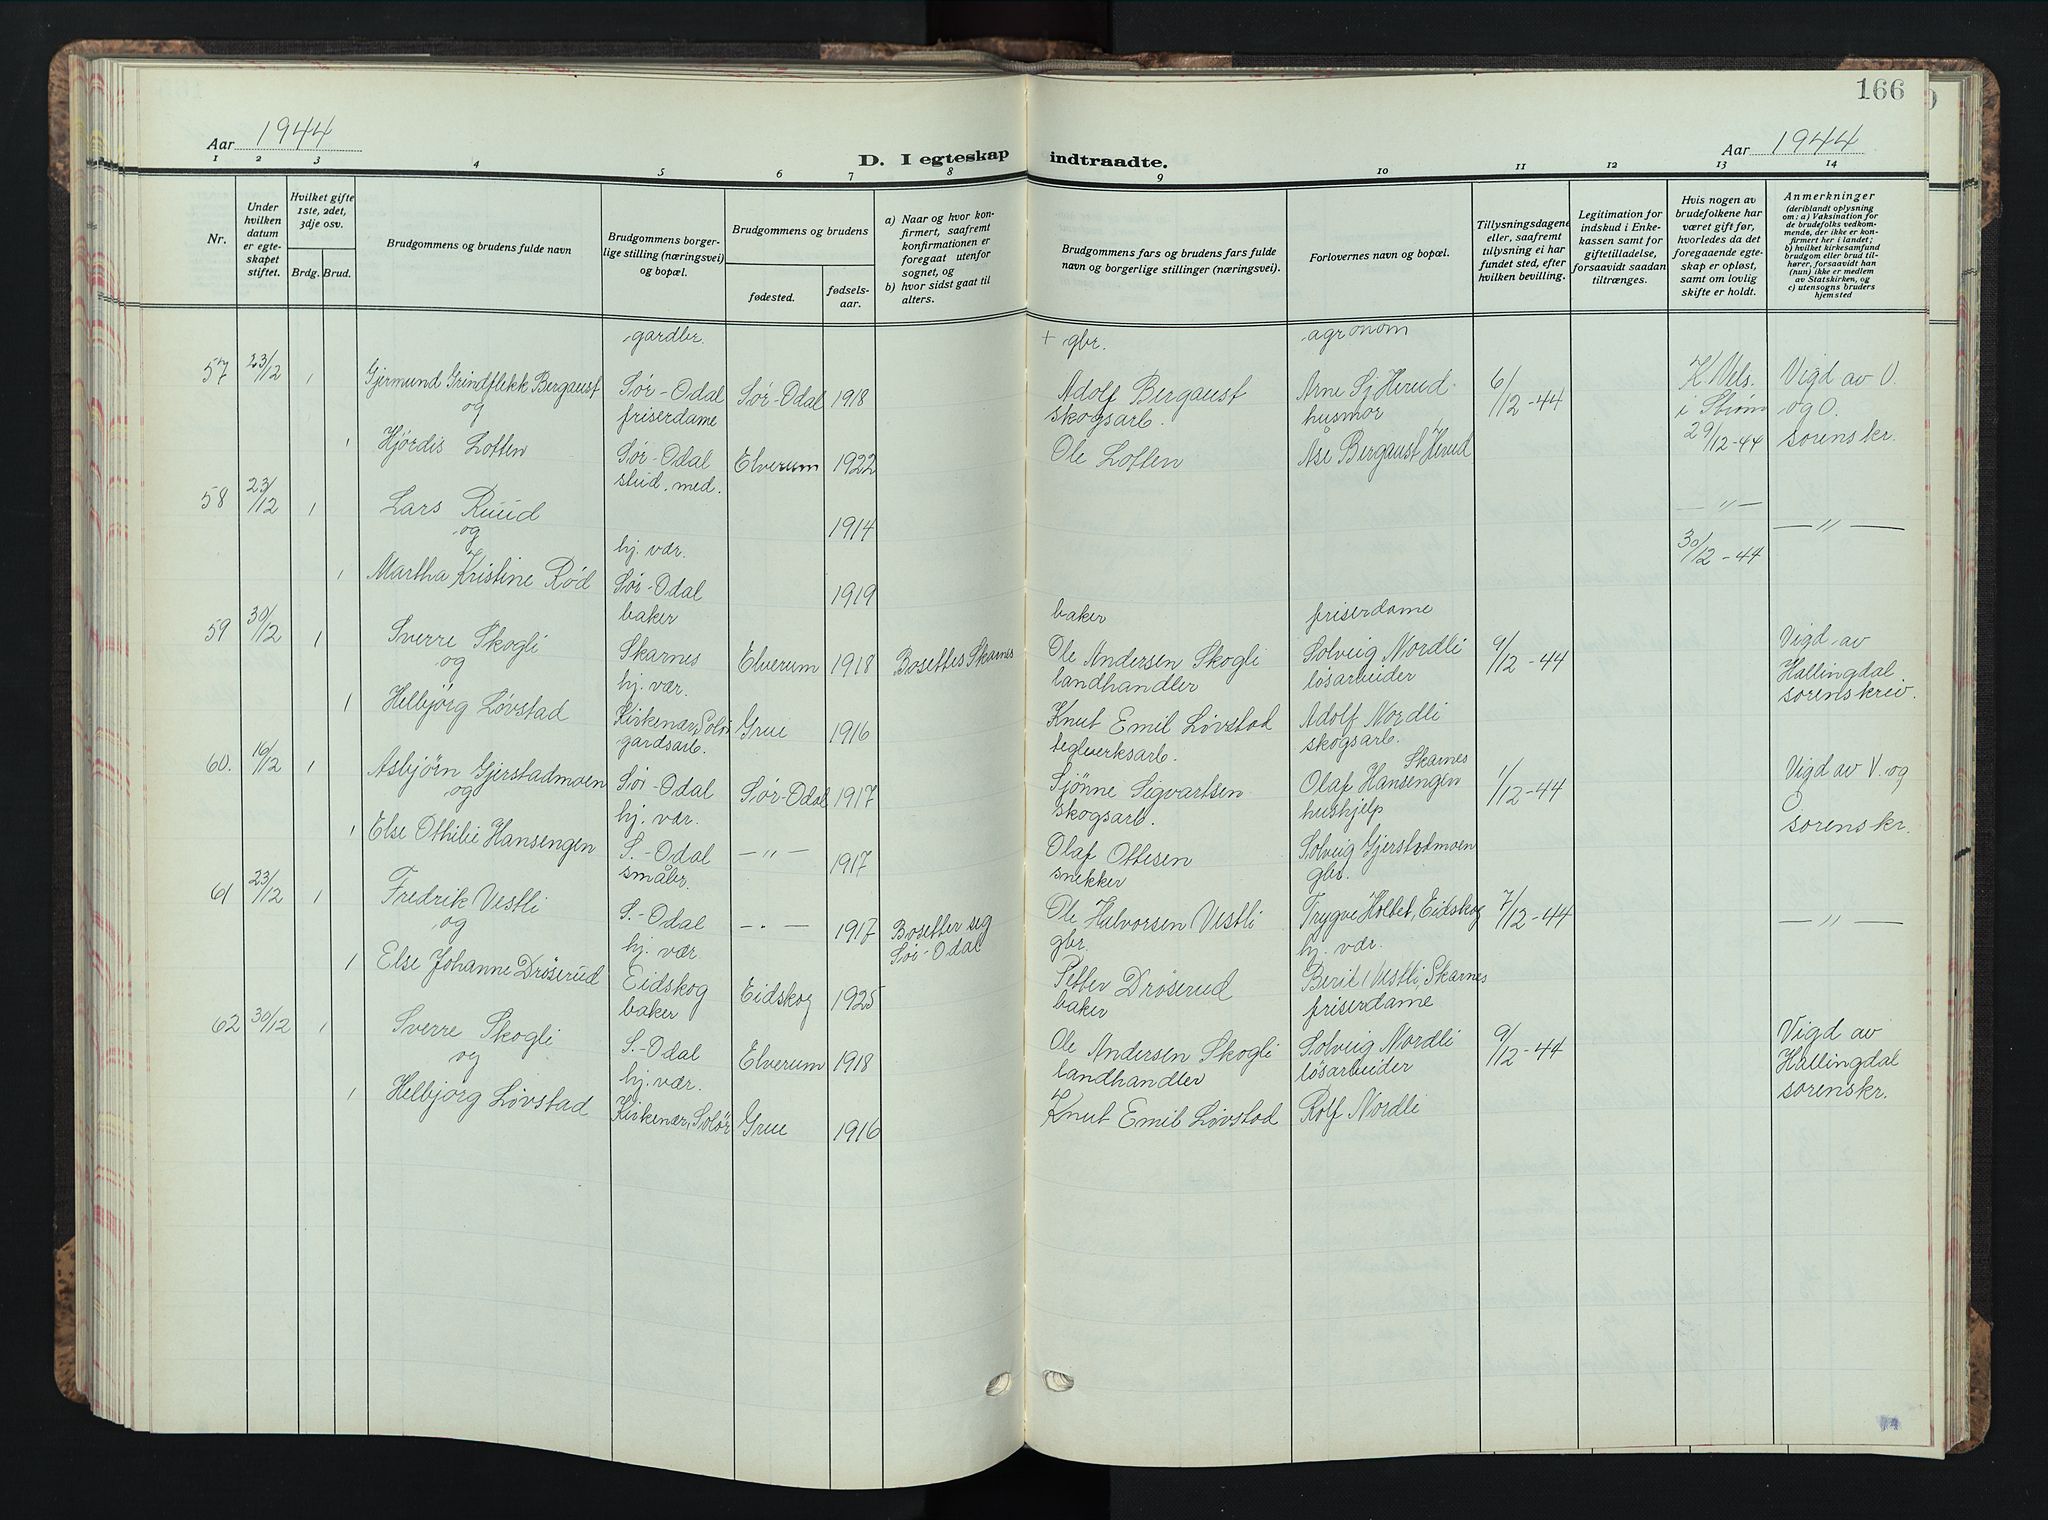 166
Aar 1944
D. I egteskap indtraadte.
Aar 1944
1 2 3 4 5 6 7 8 9 10 11 12 13 14
Nr.
Under hvilken datum er egteskapet stiftet.
Hvilket gifte 1ste, 2det, 3dje osv.
Brdg. Brud.
Brudgommens og brudens fulde navn
Brudgommens borgerlige stilling (næringsvei) og bopæl.
Brudgommens og brudens
fødested.
fødselsaar.
a) Naar og hvor konfirmert, saafremt konfirmationen er foregaat utenfor sognet, og
b) hvor sidst gaat til alters.
Brudgommens fars og brudens fars fulde navn og borgerlige stillinger (næringsvei).
Forlovernes navn og bopæl.
Tillysningsdagene eller, saafremt tillysning ei har fundet sted, efter hvilken bevilling.
Legitimation for indskud i Enkekassen samt for giftetilladelse, forsaavidt saadan tiltrænges.
Hvis nogen av brudefolkene har været gift før, hvorledes da det foregaaende egteskap er opløst, samt om lovlig skifte er holdt.
Anmerkninger
(deriblandt oplysning om: a) Vaksination for de brudefolks vedkommende, der ikke er konfirmert her i landet; b) hvilket kirkesamfund brudgom eller brud tilhører, forsaavidt han (hun) ikke er medlem av Statskirken, og c) utensogns bruders hjemsted
gardbr. + gbr. agronom
57 23/12 1 Gjermund Grindflekk Bergaust Sør-Odal Sør-Odal 1918 Adolf Bergaust Arne Sj Herud 6/12-44 K. Vels. Vigd av V.
og friserdame skogsarb. husmor i Strøm og O.
1 Hjørdis Loften Sør-Odal Elverum 1922 Ole Loften Åse Bergaust Herud 29/12-44 sorenskr.
stud. med.
58 23/12 1 Lars Ruud 1914 —〃— —〃—
og hj. vær. 30/12-44
1 Martha Kristine Rød Sør-Odal 1919
baker baker friserdame
59 30/12 1 Sverre Skogli Skarnes Elverum 1918 Bosettes Skarnes Ole Andersen Skogli Solveig Nordli 9/12-44 Vigd av
og hj. vær. landhandler løsarbeider Hallingdal
1 Helbjørg Løvstad Kirkenær, Solør Grue 1916 Knut Emil Løvstad Adolf Nordli sorenskriv.
gardsarb. teglverksarb. skogsarb.
60. 16/12 1 Asbjørn Gjerstadmoen Sør-Odal Sør-Odal 1917 Sjønne Sigvartsen Olaf Hansengen Skarnes 1/12-44 Vigd av V. og
og hj. vær. skogsarb. hushjelp O
1 Else Othilie Hansengen S.-Odal —〃— 1917 Olaf Ottesen Solveig Gjerstadmoen sorenskr.
småbr. snekker gbr.
61 23/12 1 Fredrik Vestli S.-Odal —〃— 1917 Bosetter seg Ole Halvorsen Vestli Trygve Holtet, Eidskog 7/12-44 —〃—
og hj. vær. Sør-Odal gbr. hj. vær.
1 Else Johanne Drøserud Eidskog Eidskog 1925 Petter Drøserud Berit Vestli, Skarnes
baker baker friserdame
62 30/12 1 Sverre Skogli S.-Odal Elverum 1918 Ole Andersen Skogli Solveig Nordli 9/12-44 Vigd av
og hj. vær. landhandler løsarbeider Hallingdal
1 Helbjørg Løvstad Kirkenær, Solør Grue 1916 Knut Emil Løvstad Rolf Nordli sorenskr.